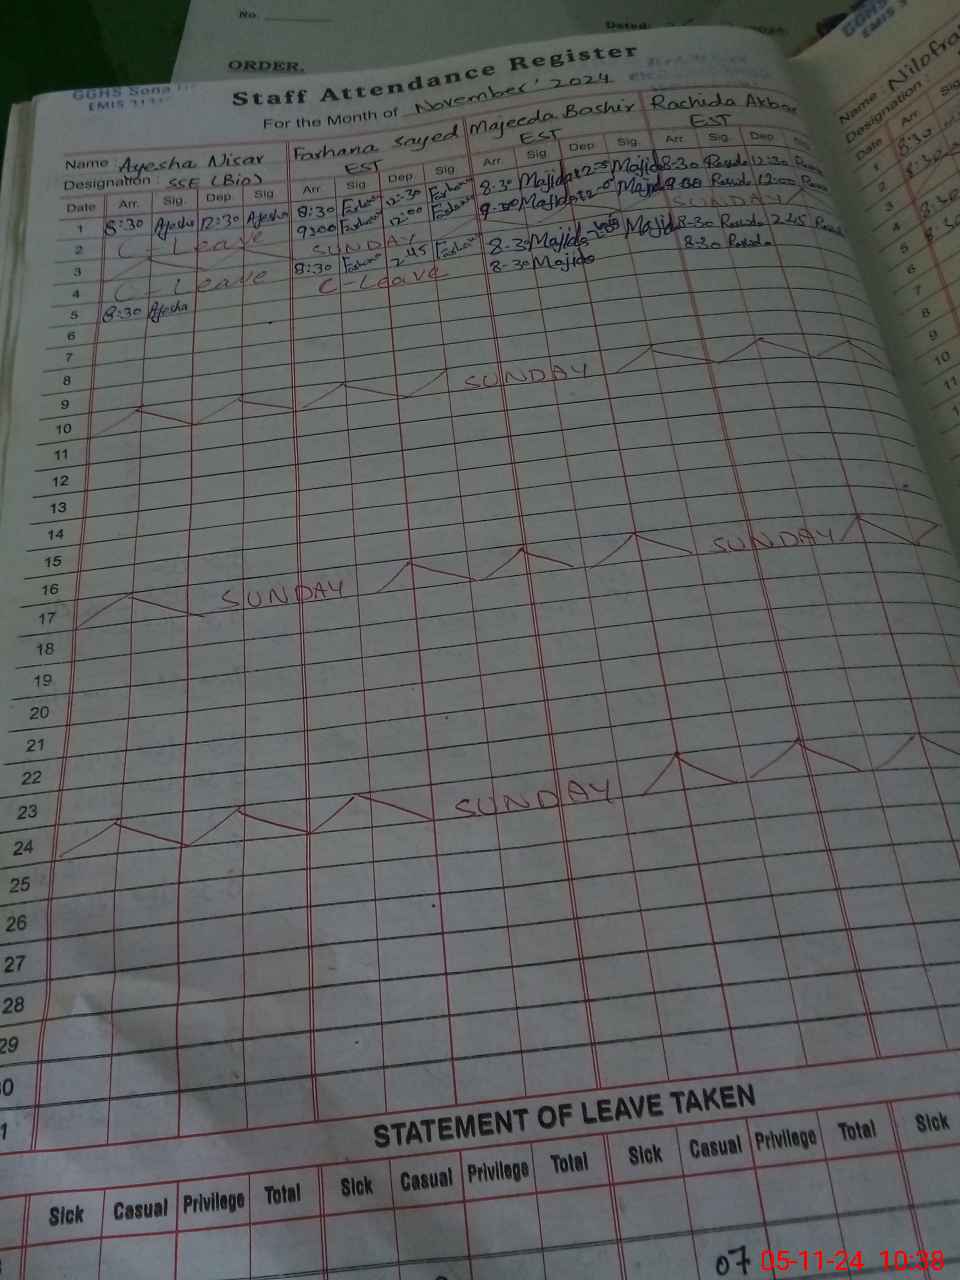 No.
Dated:
ORDER.
GGHS Sona
EMIS
Staff Attendance Register
For the Month of November' 2024
Name : Ayesha Nisar Farhana Sayed Majeeda Bashir Rachida Akbar
Designation : SSE (Bio) EST EST EST
Date Arr. Sig. Dep. Sig. Arr. Sig. Dep. Sig. Arr. Sig. Dep. Sig. Arr. Sig. Dep.
1 8:30 Ayesha 12:30 Ayesha 8:30 Farhana 12:30 Farhana 8-30 Majida Majida 8-30 12:30
2 C-Leave 9:00 Farhana 12:00 Farhana 9-00 Majida Majida 9:00 12:00
3 SUNDAY SUNDAY
4 C-Leave 8:30 Farhana 2:45 Farhana 8-30 Majida Majida 8-30 2:45
5 8:30 Ayesha C-Leave 8-30 Majida 8-30
6
7
8
9
10 SUNDAY
11
12
13
14
15
16
17 SUNDAY SUNDAY
18
19
20
21
22
23
24 SUNDAY
25
26
27
28
29
STATEMENT OF LEAVE TAKEN
Sick Casual Privilege Total Sick Casual Privilege Total Sick Casual Privilege Total Sick
07
Name Nilofra
Designation :
Date Arr
1 8:30
2
3
4 8:30
5 8:30
6
7
8
9
10
11
05-11-24 10:38